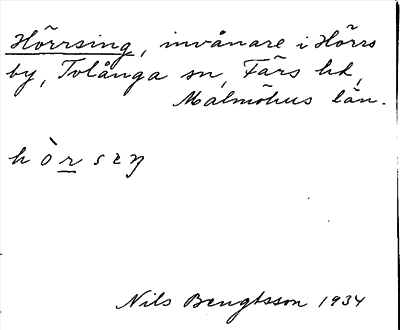 Hörrsing, invånare i Hörrs
by, Tolånga sn, Färs hd,
Malmöhus län.
hòrsıŋ
Nils Bengtsson 1934